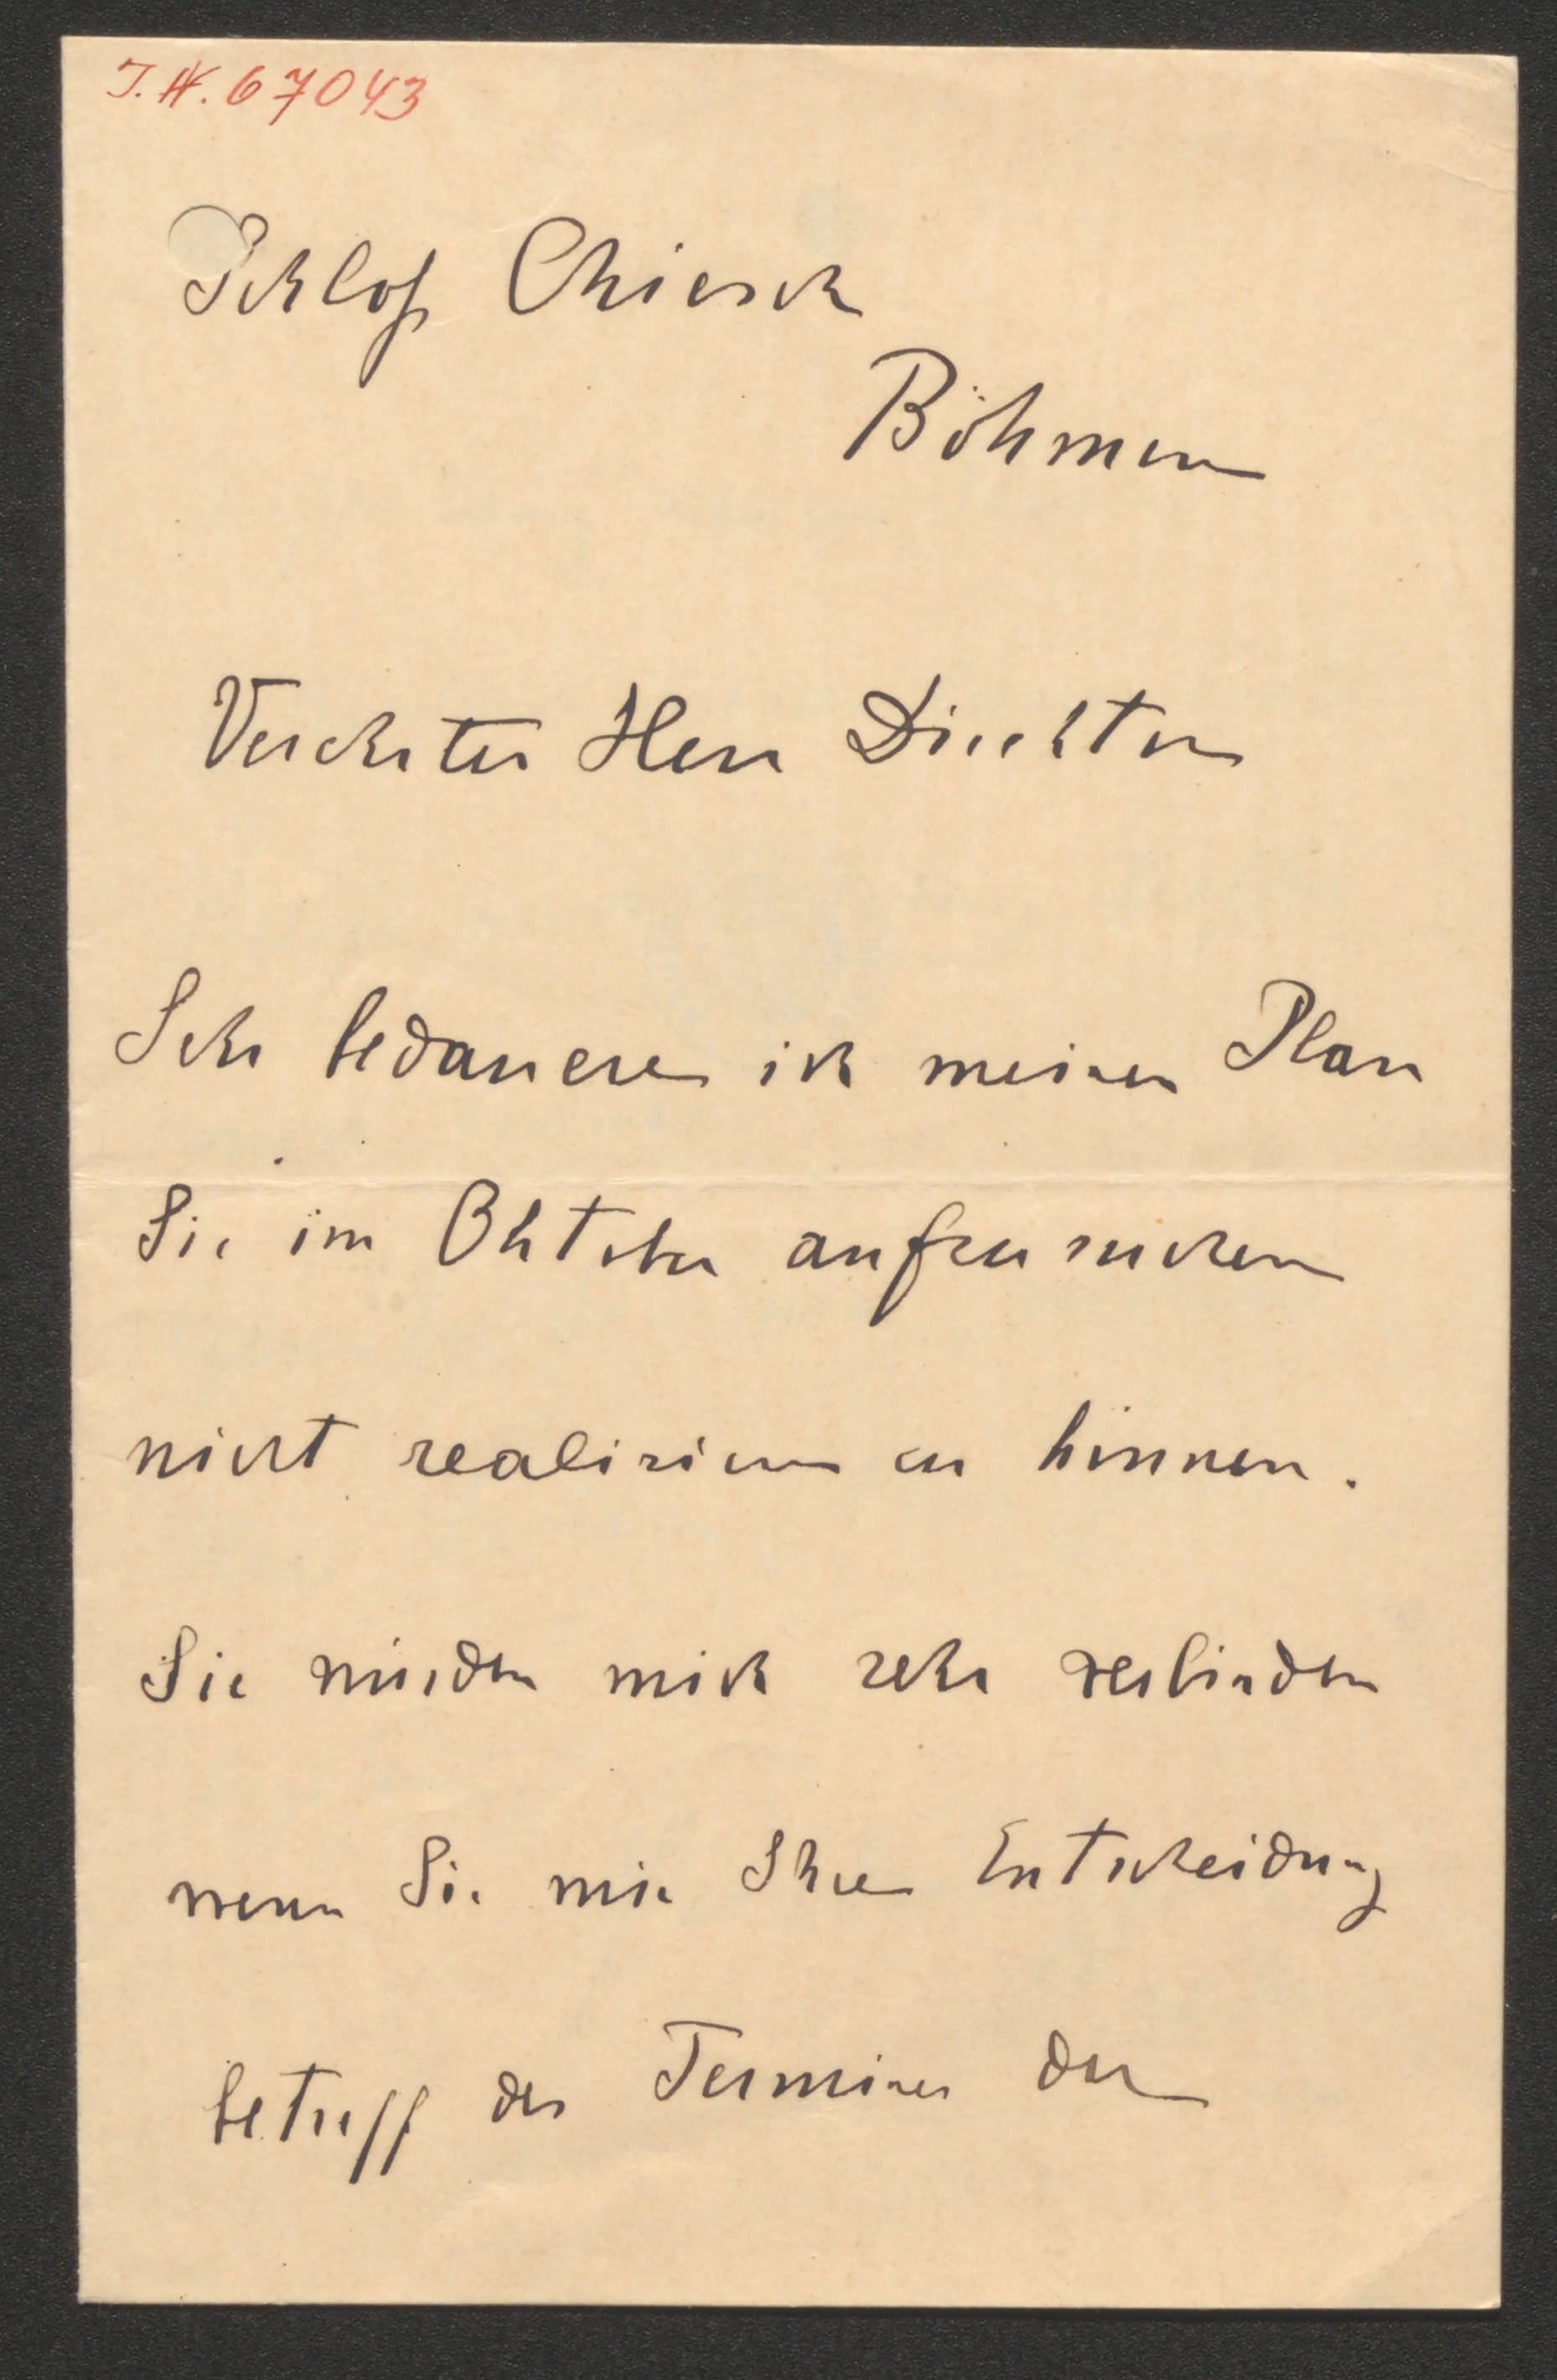 I.N. 67043
Schloß Chiesch
Böhmen
Verehrter Herr Direktor
Sehr bedauere ich meinen Plan
Sie im Oktober aufzusuchen
nicht realisieren zu können.
Sie würden mich sehr verbinden
wenn Sie mir Ihre Entscheidung
betreff des Termines der